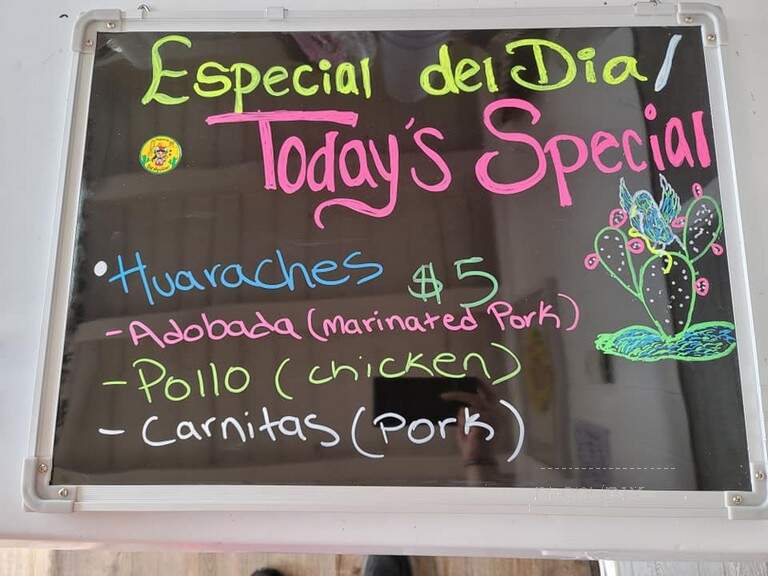 Especial del Dia/
Today's Special
• Huaraches $5
- Adobada (Marinated Pork)
- Pollo (chicken)
- Carnitas (Pork)